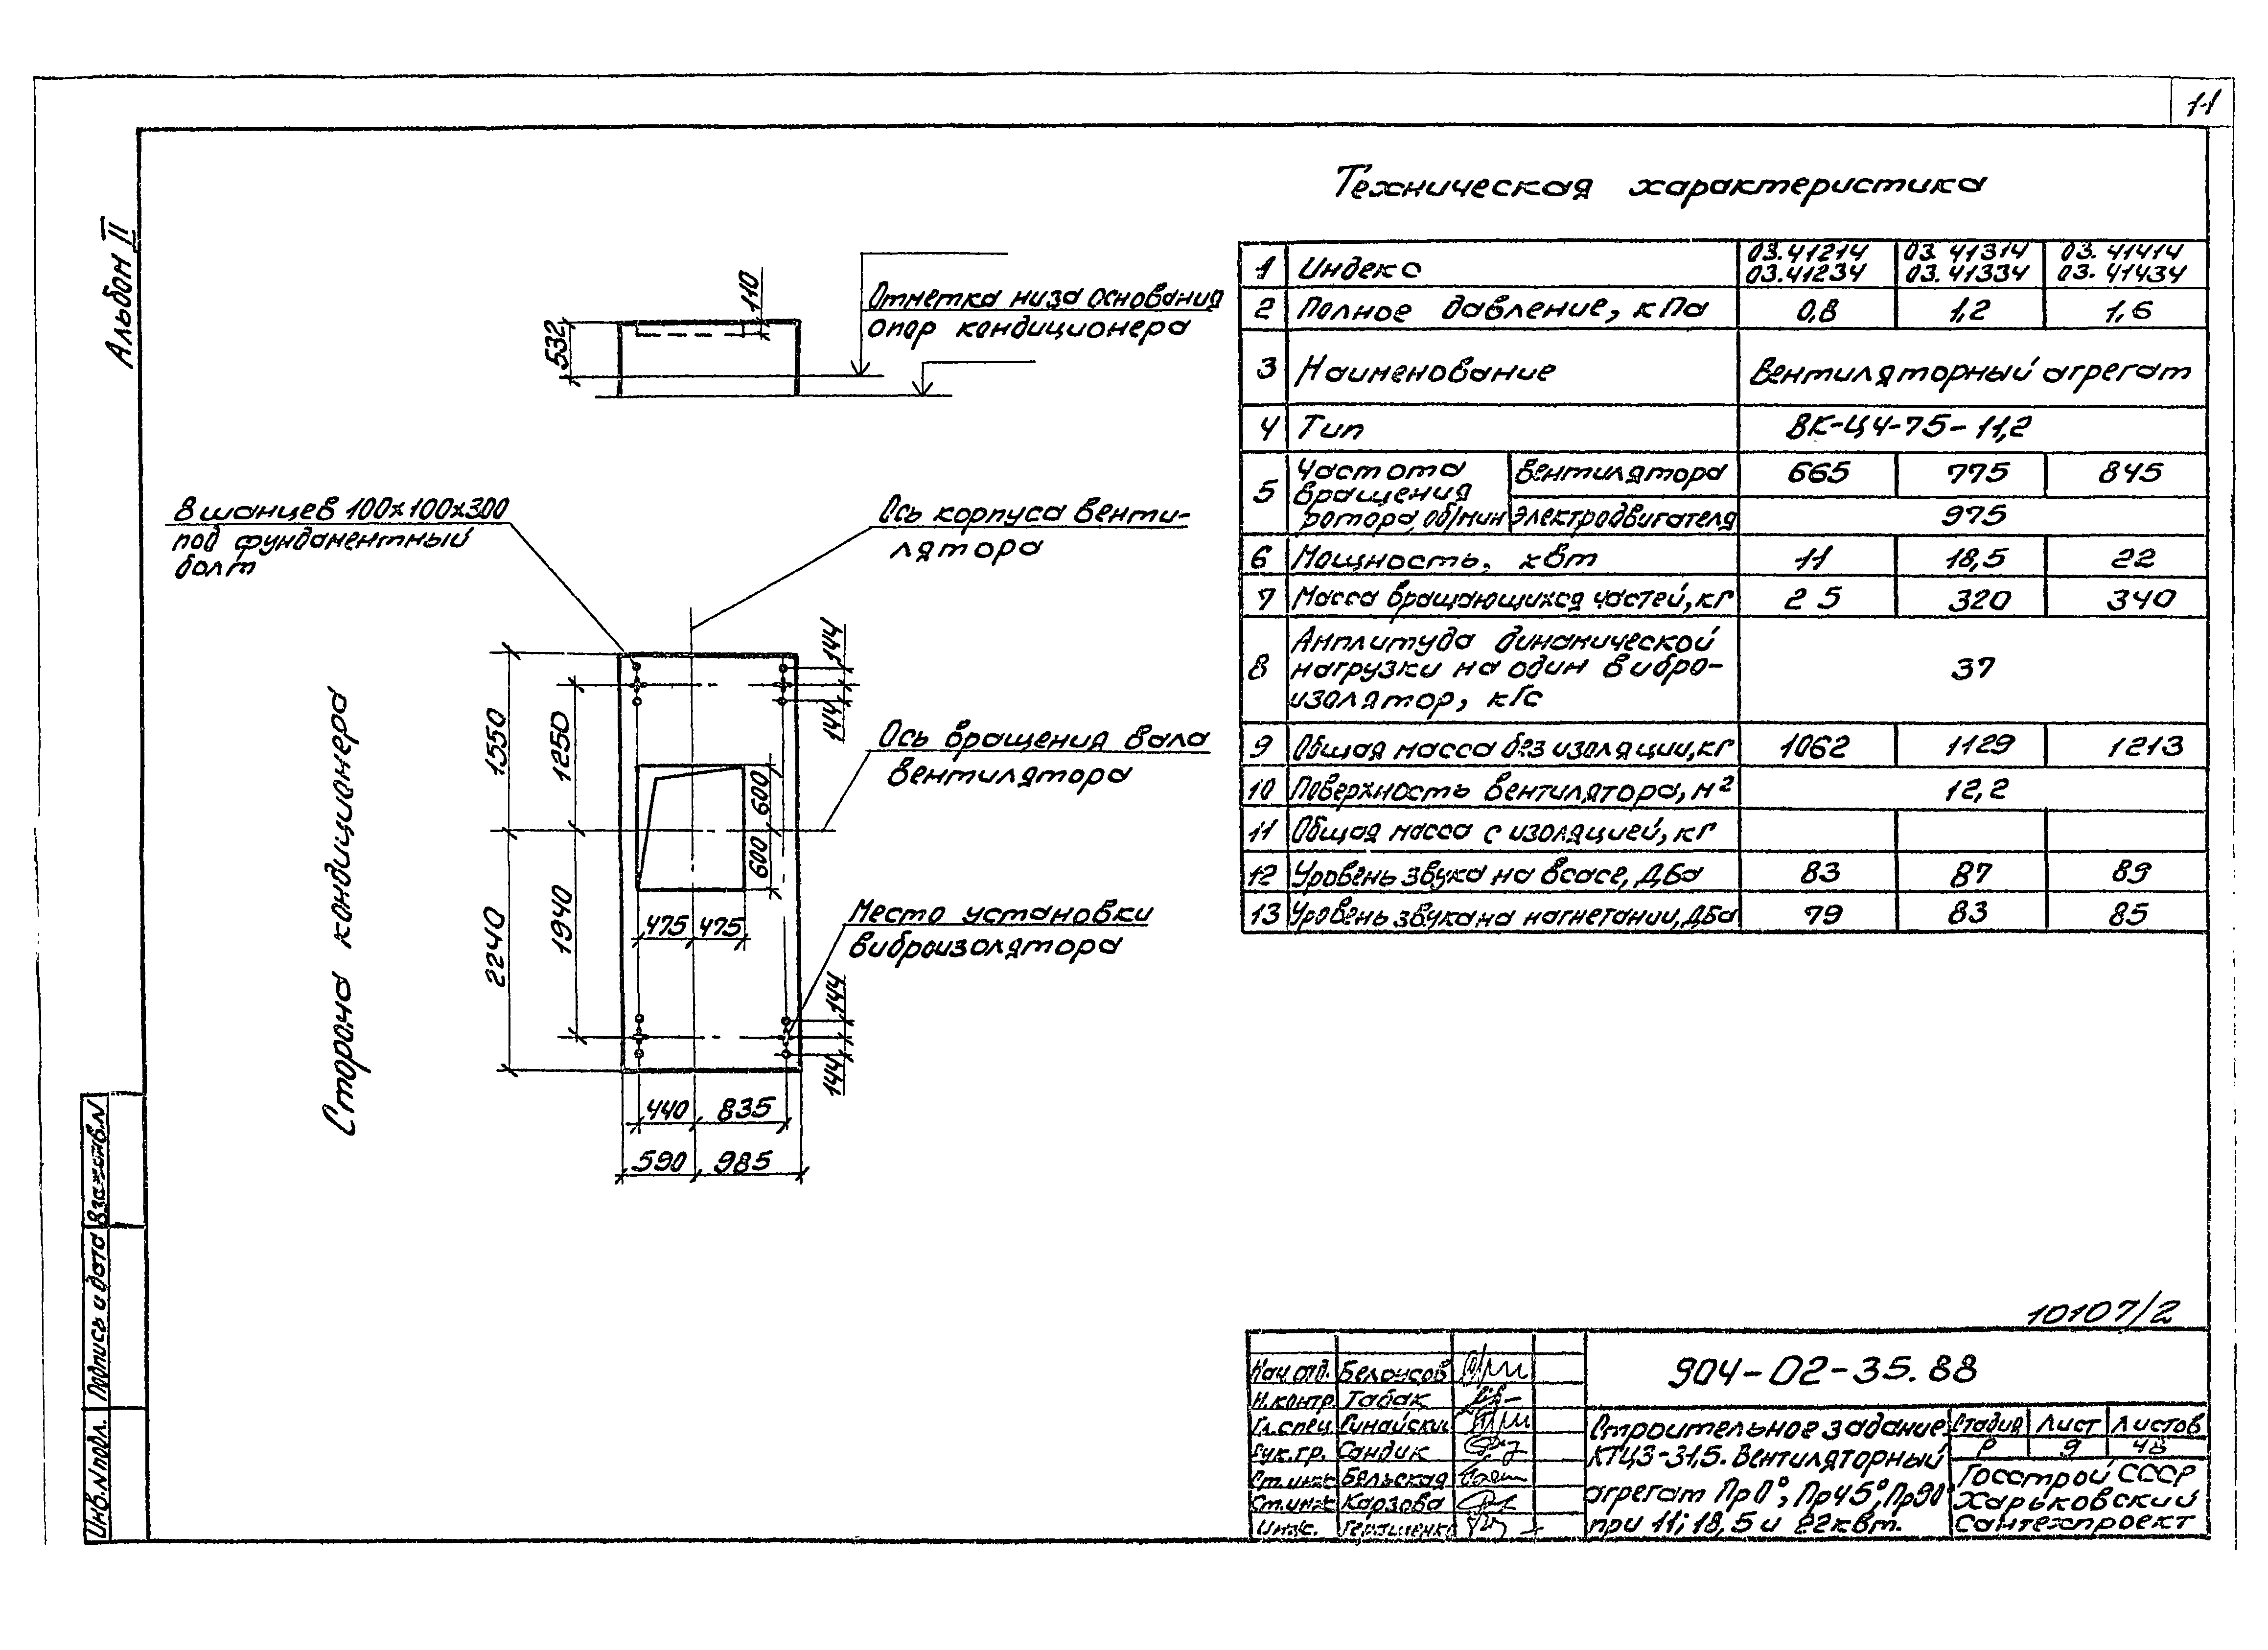 11
Альбом II
Техническая характеристика
1 Индекс 03.41214 03.41314 03.41414
03.41234 03.41334 03.41434
2 Полное давление, кПа 0,8 1,2 1,6
3 Наименование Вентиляторный агрегат
4 Тип ВК-Ц4-75-11,2
5 Частота вращения ротора, об/мин вентилятора 665 775 845
электродвигателя 975
6 Мощность, квт 11 18,5 22
7 Масса вращающихся частей, кг 2 5 320 340
8 Амплитуда динамической
нагрузки на один вибро-
изолятор, кГс 37
9 Общая масса без изоляции, кг 1062 1129 1213
10 Поверхность вентилятора, м² 12,2
11 Общая масса с изоляцией, кг
12 Уровень звука на всасе, дБа 83 87 89
13 Уровень звука на нагнетании, дБа 79 83 85
110
532
Отметка низа основания
опор кондиционера
8 шанцев 100х100х300
под фундаментный
болт
Ось корпуса венти-
лятора
Ось вращения вала
вентилятора
Место установки
виброизолятора
Сторона кондиционера
144
144
1550
1250
600
600
2240
1940
475 475
144
144
440 835
590 985
Взам.инв.N
Подпись и дата
Инв.N подл.
10107/2
904-02-35.88
Нач. отд. Белоусов
Н.контр. Табак
Гл.спец.
Рук.гр. Сандик
Ст.инж Бельская
Ст.инж Карзова
Инж. Герашенко
Строительное задание
КТЦ3-31,5. Вентиляторный
агрегат Пр0°, Пр45°, Пр90°
при 11; 18,5 и 22квт.
Стадия Лист Листов
Р 9 48
Госстрой СССР
Харьковский
Сантехпроект